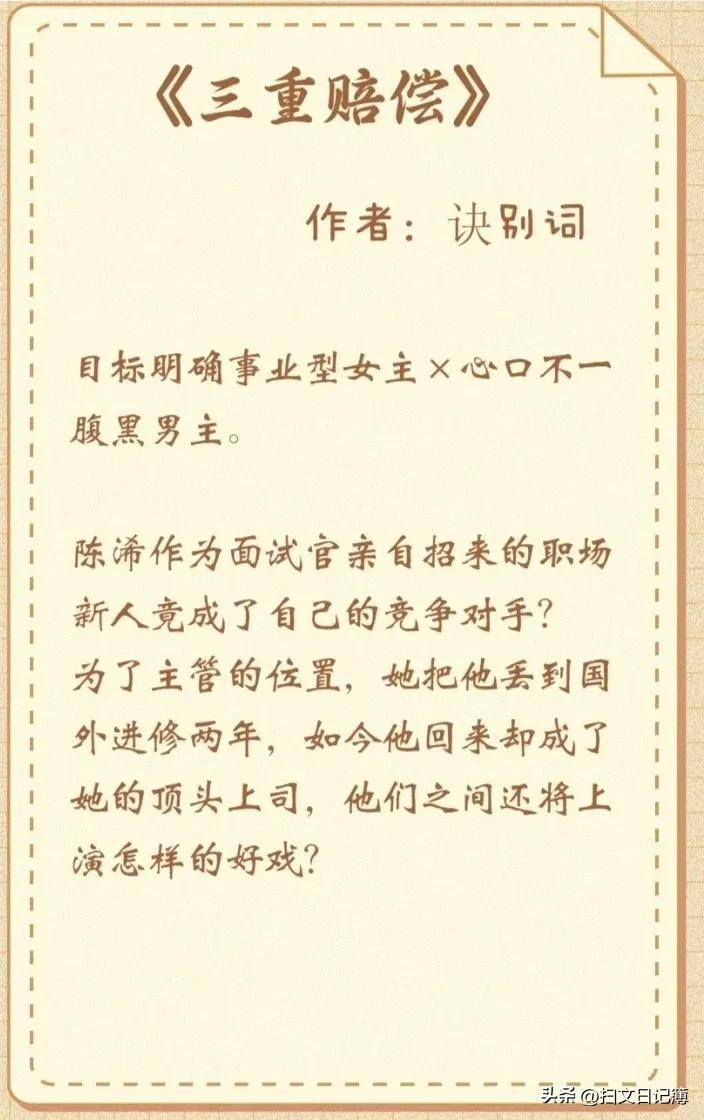 《三重赔偿》
作者：诀别词
目标明确事业型女主×心口不一
腹黑男主。
陈浠作为面试官亲自招来的职场
新人竟成了自己的竞争对手？
为了主管的位置，她把他丢到国
外进修两年，如今他回来却成了
她的顶头上司，他们之间还将上
演怎样的好戏？
头条 @扫文日记簿